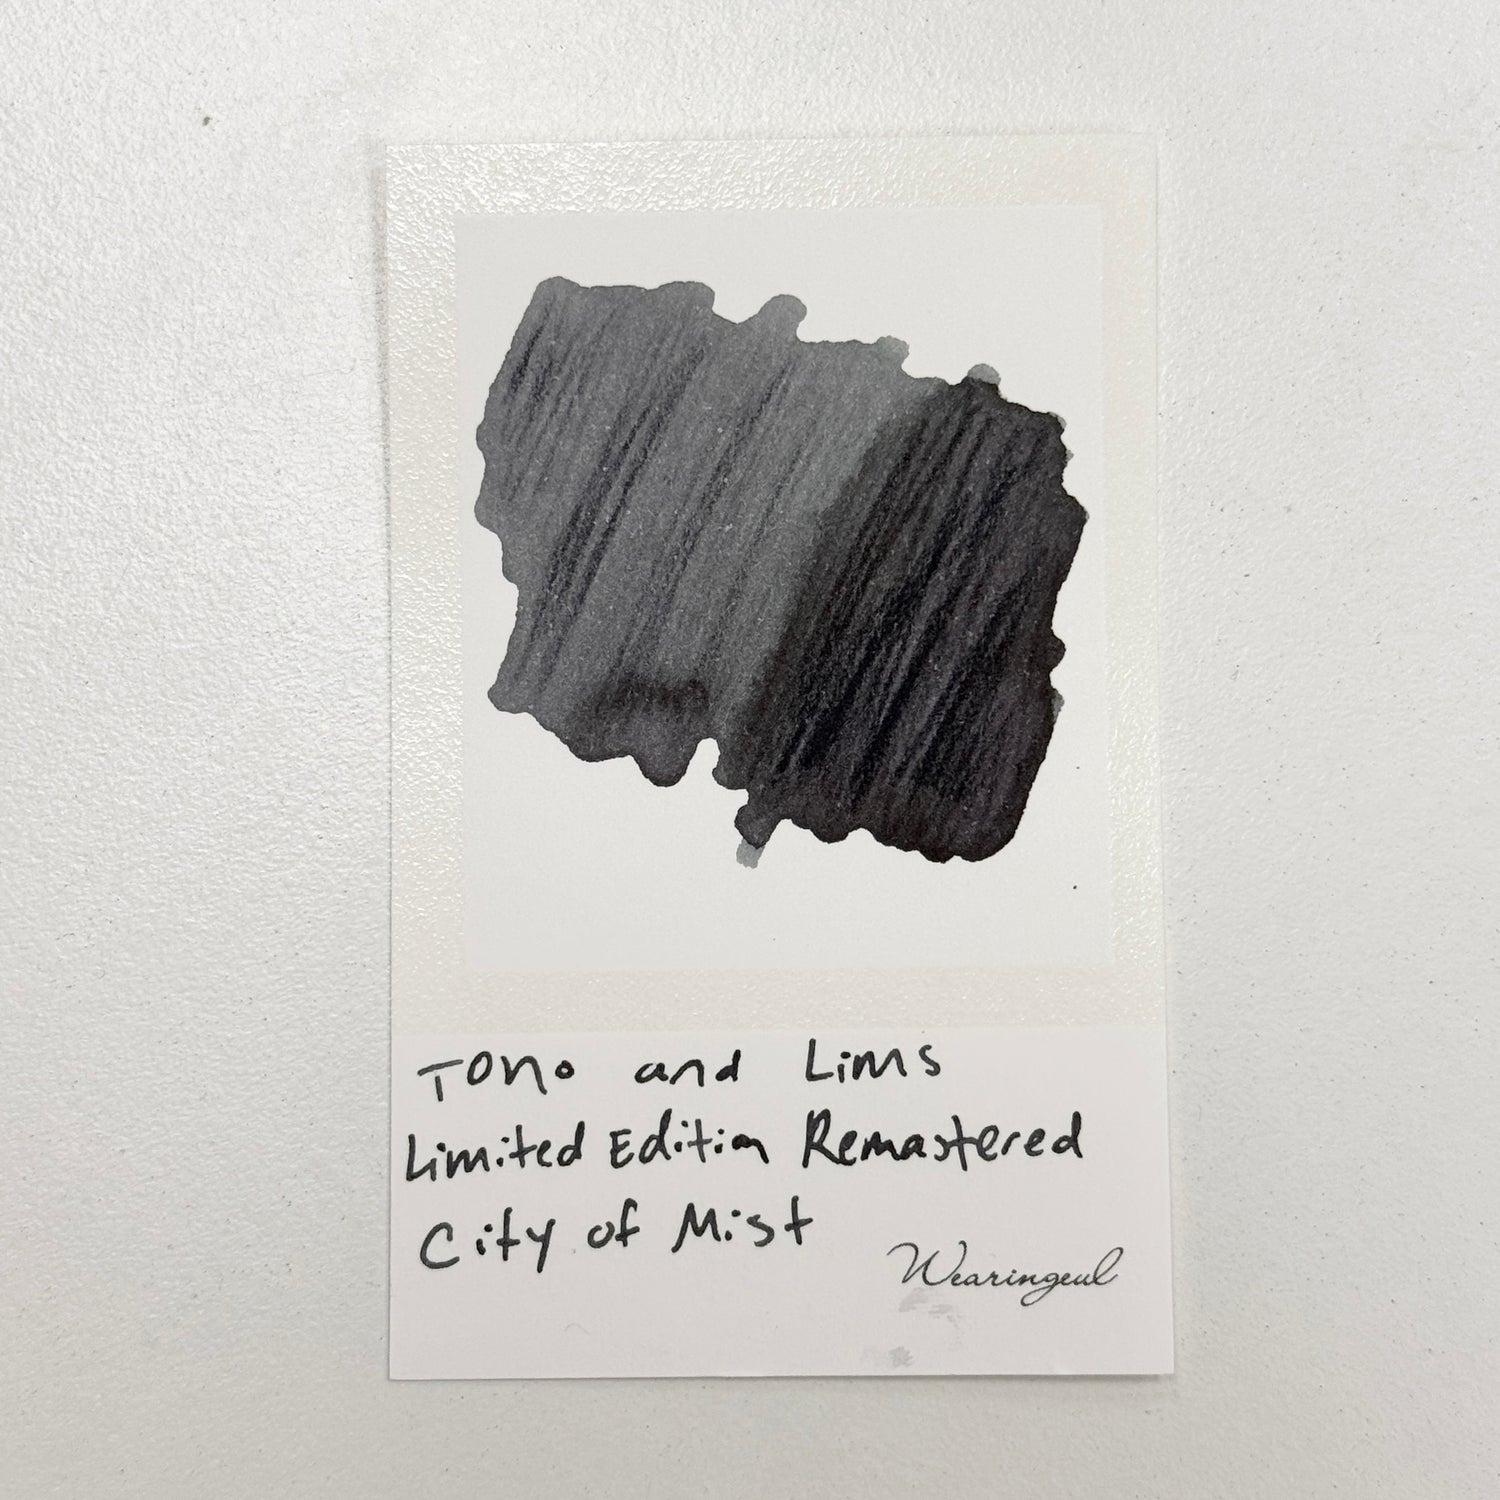 Tono and Lims
Limited Edition Remastered
City of Mist
Wearingeul